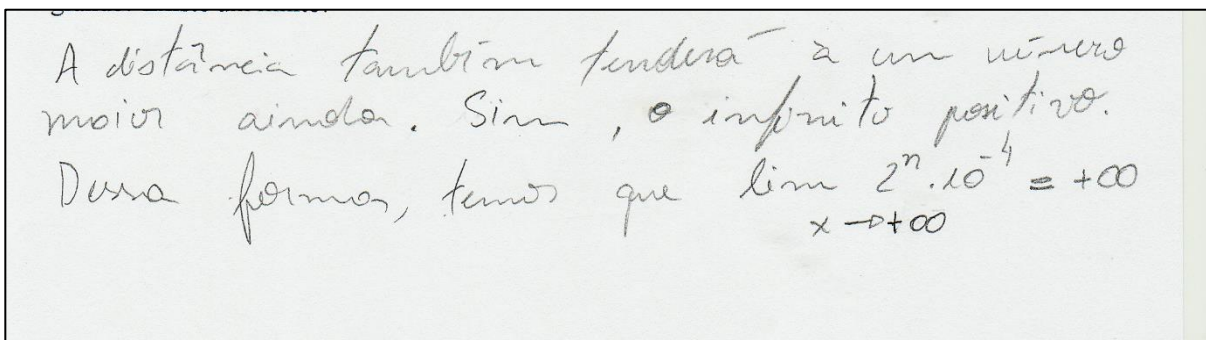 A distância também tenderá à um número
maior ainda. Sim, o infinito positivo.
Dessa forma, temos que lim 2ⁿ.10⁻⁴ = +∞
x→+∞